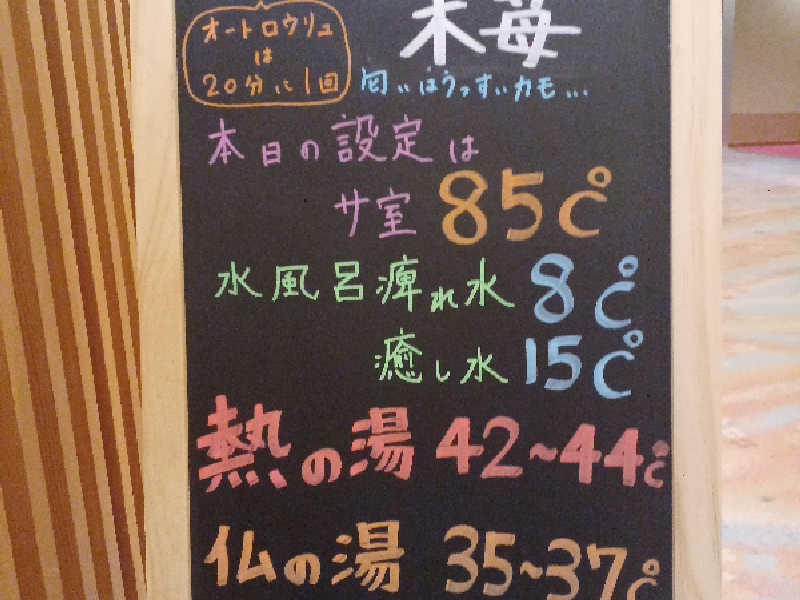 オートロウリュ
は
20分に1回
木苺
匂いはうっすいカモ...
本日の設定は
サ室 85℃
水風呂 痺れ水 8℃
癒し水 15℃
熱の湯 42~44℃
仏の湯 35~37℃